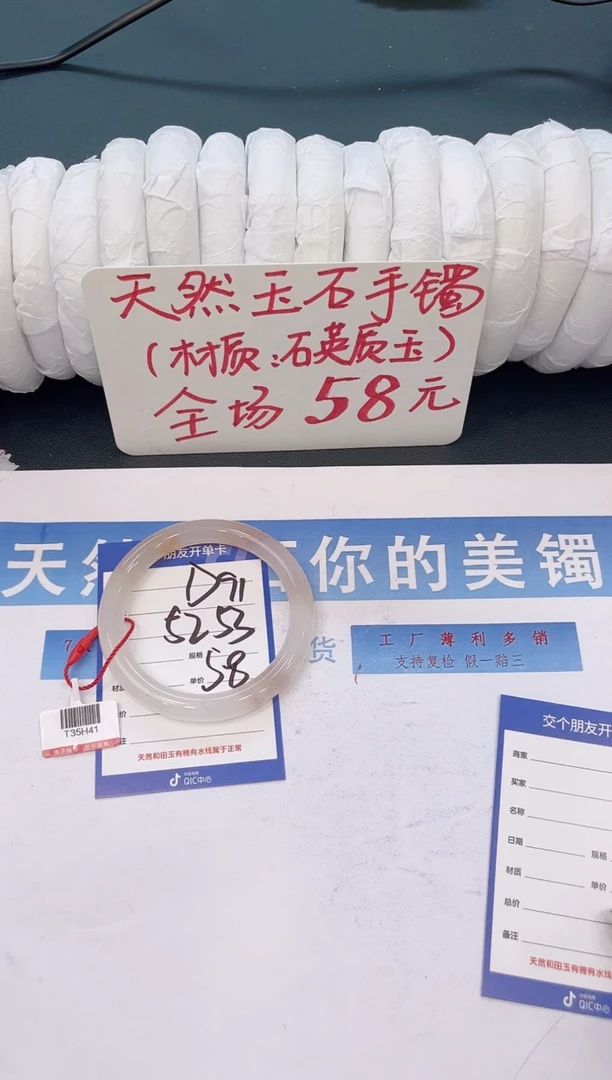 天然玉石手镯
(材质:石英质玉)
全场 58元
天然
你的美镯
货
工厂薄利多销
支持复检 假一赔三
朋友开单卡
D91
5253
规格
单价 58
价
注
天然和田玉有棉有水线属于正常
QIC中心
T35H41
交个朋友开
商家
买家
名称
日期 规格
材质 单价
总价
备注
天然和田玉有棉有水线
QIC中心